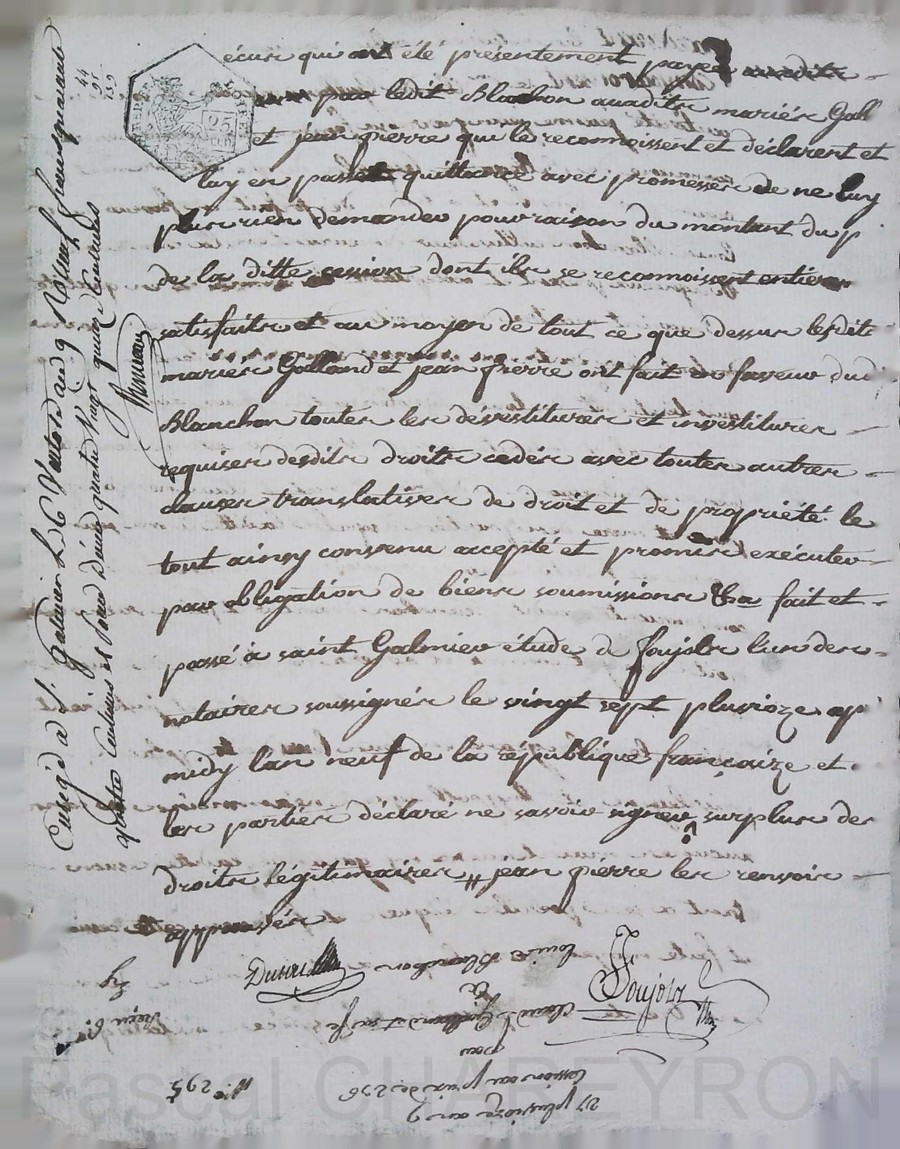 écus qui ont été présentement payés auxdits
par ledit Blanchon auxdits mariés Gall
et jean pierre qui le reconnoissent et déclarent et
luy en passent quittance avec promesses de ne luy
plus rien demander pour raison du montant du p
de la ditte cession dont ils se reconnoissent entierem
satisfaits et au moyen de tout ce que dessus lesdits
mariés Galland et jean pierre ont fait en faveur dud
Blanchon toutes les dévestitures et investitures
requises desdits droits cédés avec toutes autres
clauses translatives de droit et de propriété le
tout ainsy convenu accepté et promis exécuter
par obligation de biens soumissions fait et
passé à saint Galmier étude de Foujols lun des
notaires soussignés le vingt sept pluvioze ap
midy lan neuf de la république françaize et
les parties déclaré ne savoir signer surplus des
droits légitimaires jean pierre les renvoir
approuvés
Foujols
27 pluvioze an 9
cession au prix de 296
par
Claude Galland et sa fe
à
Louis Blanchon
No 295
reçu 6
Enregé a St. galmier le 6 Ventose an 9 Reçu neuf francs quarante
quatre centimes et pour Dixme quatre vingt quinze Centimes
44
95
139
25